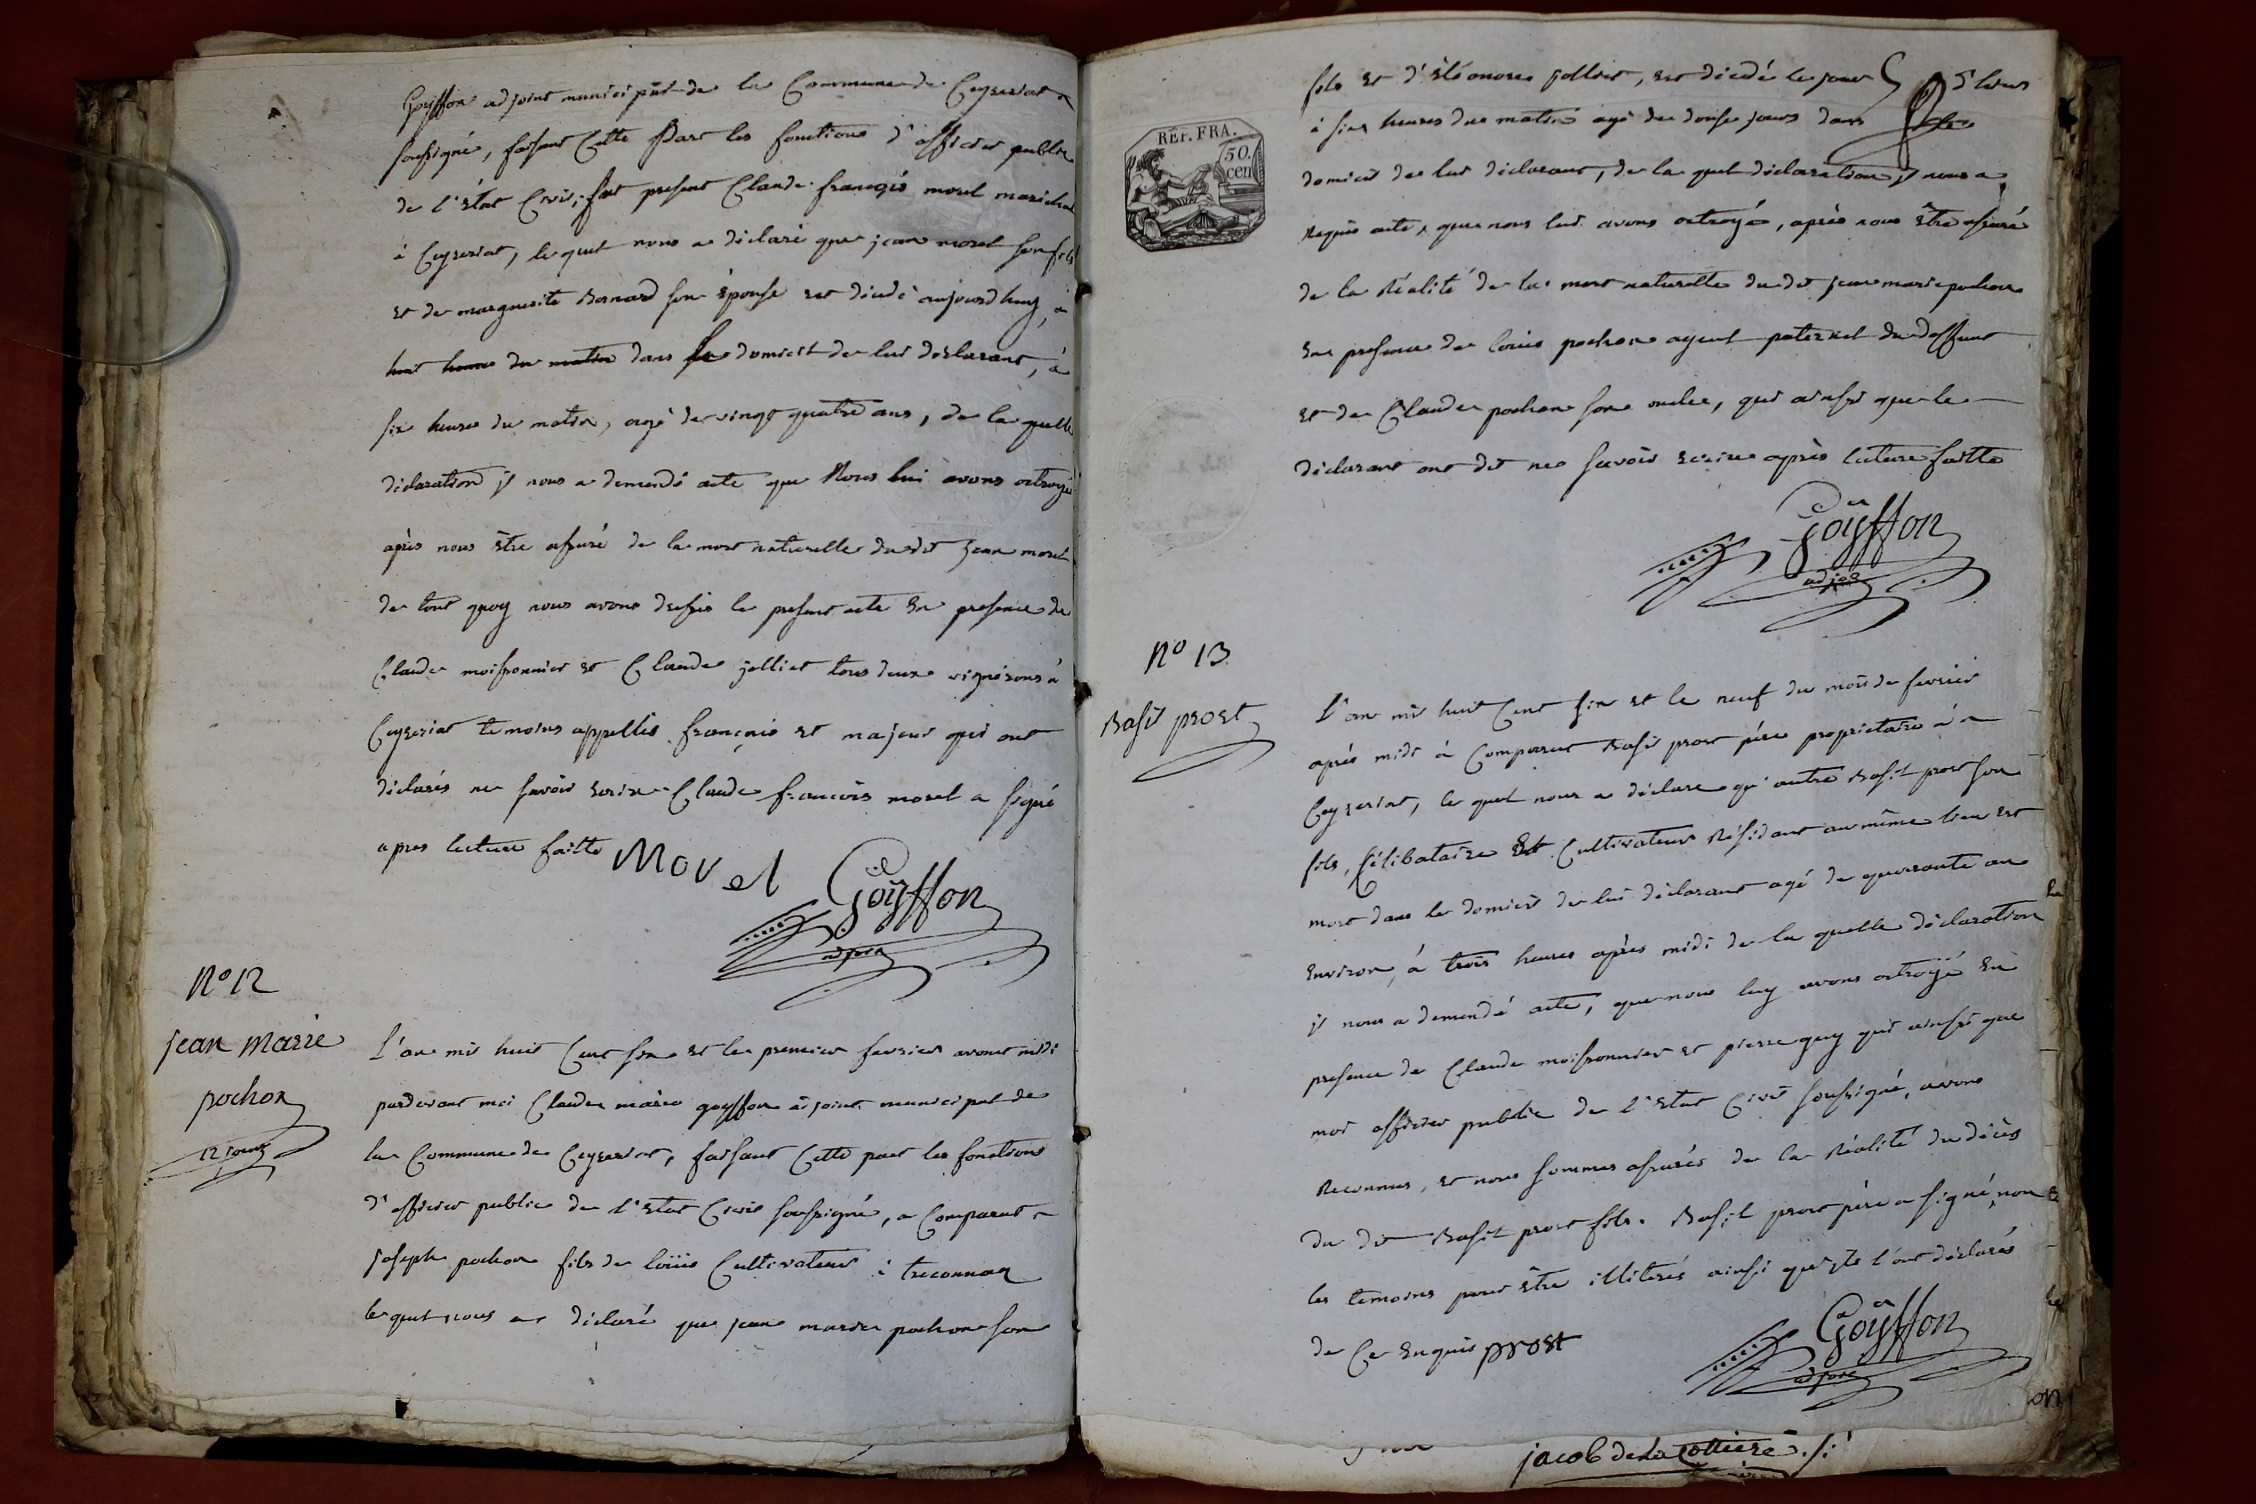 Goyffon adjoint municipal de la Commune de Ceyzeriat
soussigné, faisant Cette Part les fonctions d'officier public
de l'état Civil, fut present Claude françois morel marechal
à Ceyzeriat, le quel nous a déclaré que jean morel son fils
et de marguerite Bernard son épouse est décédé aujourdhuy, à
huit heures du matin dans le domicil de lui déclarant, à
six heures du matin, agé de vingt quatre ans, de la quelle
déclaration il nous a demandé acte que Nous lui avons octroyé
après nous être assuré de la mort naturelle du dit jean morel
de tout quoy nous avons dressé le present acte En presence de
Claude moissonnier et Claude jolliet tous deux vignerons à
Ceyzeriat temoins appellés françois et majeurs qui ont
déclarés ne savoir Ecrire Claude françois morel a signé
apres lecture faitte Morel
Goÿffon
adjoint
N° 12
jean marie
pochon
12 jours
L'an mil huit Cent six et le premier fevrier avant midi
pardevant moi Claude marie goyffon adjoint municipal de
la Commune de Ceyzeriat, faisant Cette part les fonctions
d'officier public de l'Etat Civil soussigné, a Comparut
joseph pochon fils de loüis Cultivateur à treconnas
le quel nous a déclaré que jean marie pochon son
REP. FRA.
50.
cen
fils et d'Eléonore jolliet, est décédé le jour
à six heures du matin agé de douse jours dans
domicil de lui déclarant, de la quel déclaration il nous a
requis acte, que nous lui avons octroyé, après nous être assuré
de la Réalité de la mort naturelle du dit jean marie pochon
En presence de louis pochon ayeul paternel du deffunt
et de Claude pochon son oncle, qui ainsi que le
déclarant ont dit ne savoir ecrire après lecture faitte
Goÿffon
adjoint
N° 13
Basil prost
L'an mil huit Cent six et le neuf du mois de fevrier
après midi à Comparut Basil prost père propriétaire à
Ceyzeriat, le quel nous a déclaré qu'autre Basil prost son
fils, Célibataire Et Cultivateur Résidant au même lieu est
mort dans le domicil de lui déclarant agé de quarante an
Environ, à trois heures après midi de la quelle déclaration
il nous a demandé acte, que nous luy avons octroyé En
presence de Claude moissonnier et pierre guy qui ainsi que
moi officier public de l'Etat Civil soussigné, avons
Reconnus, et nous sommes assurés de la Réalité du décès
du dit Basil prost fils. Basil prost père a signé, non
les temoins pour être illiterés ainsi qu'ils l'ont déclarés
de Ce Enquis prost
Goÿffon
adjoint
jacob de la Cottiere